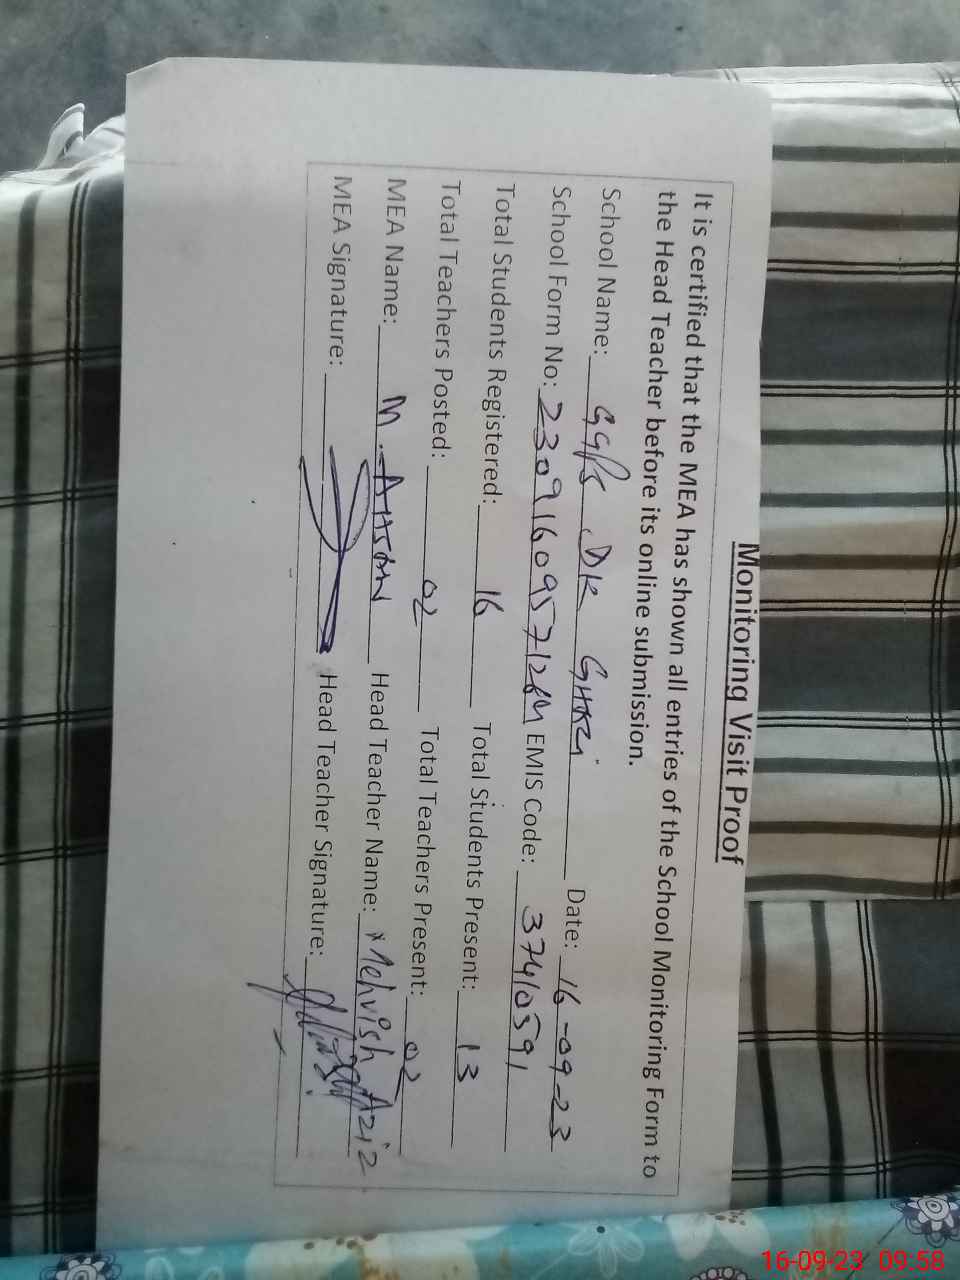 Monitoring Visit Proof
It is certified that the MEA has shown all entries of the School Monitoring Form to
the Head Teacher before its online submission.
School Name: GGPS DK GHKRi Date: 16-09-23
School Form No: 2309160957126M EMIS Code: 37410591
Total Students Registered: 16 Total Students Present: 13
Total Teachers Posted: 02 Total Teachers Present: 02
MEA Name: M. AHSAN Head Teacher Name: Mehvish Aziz
MEA Signature: Head Teacher Signature:
16-09-23 09:58